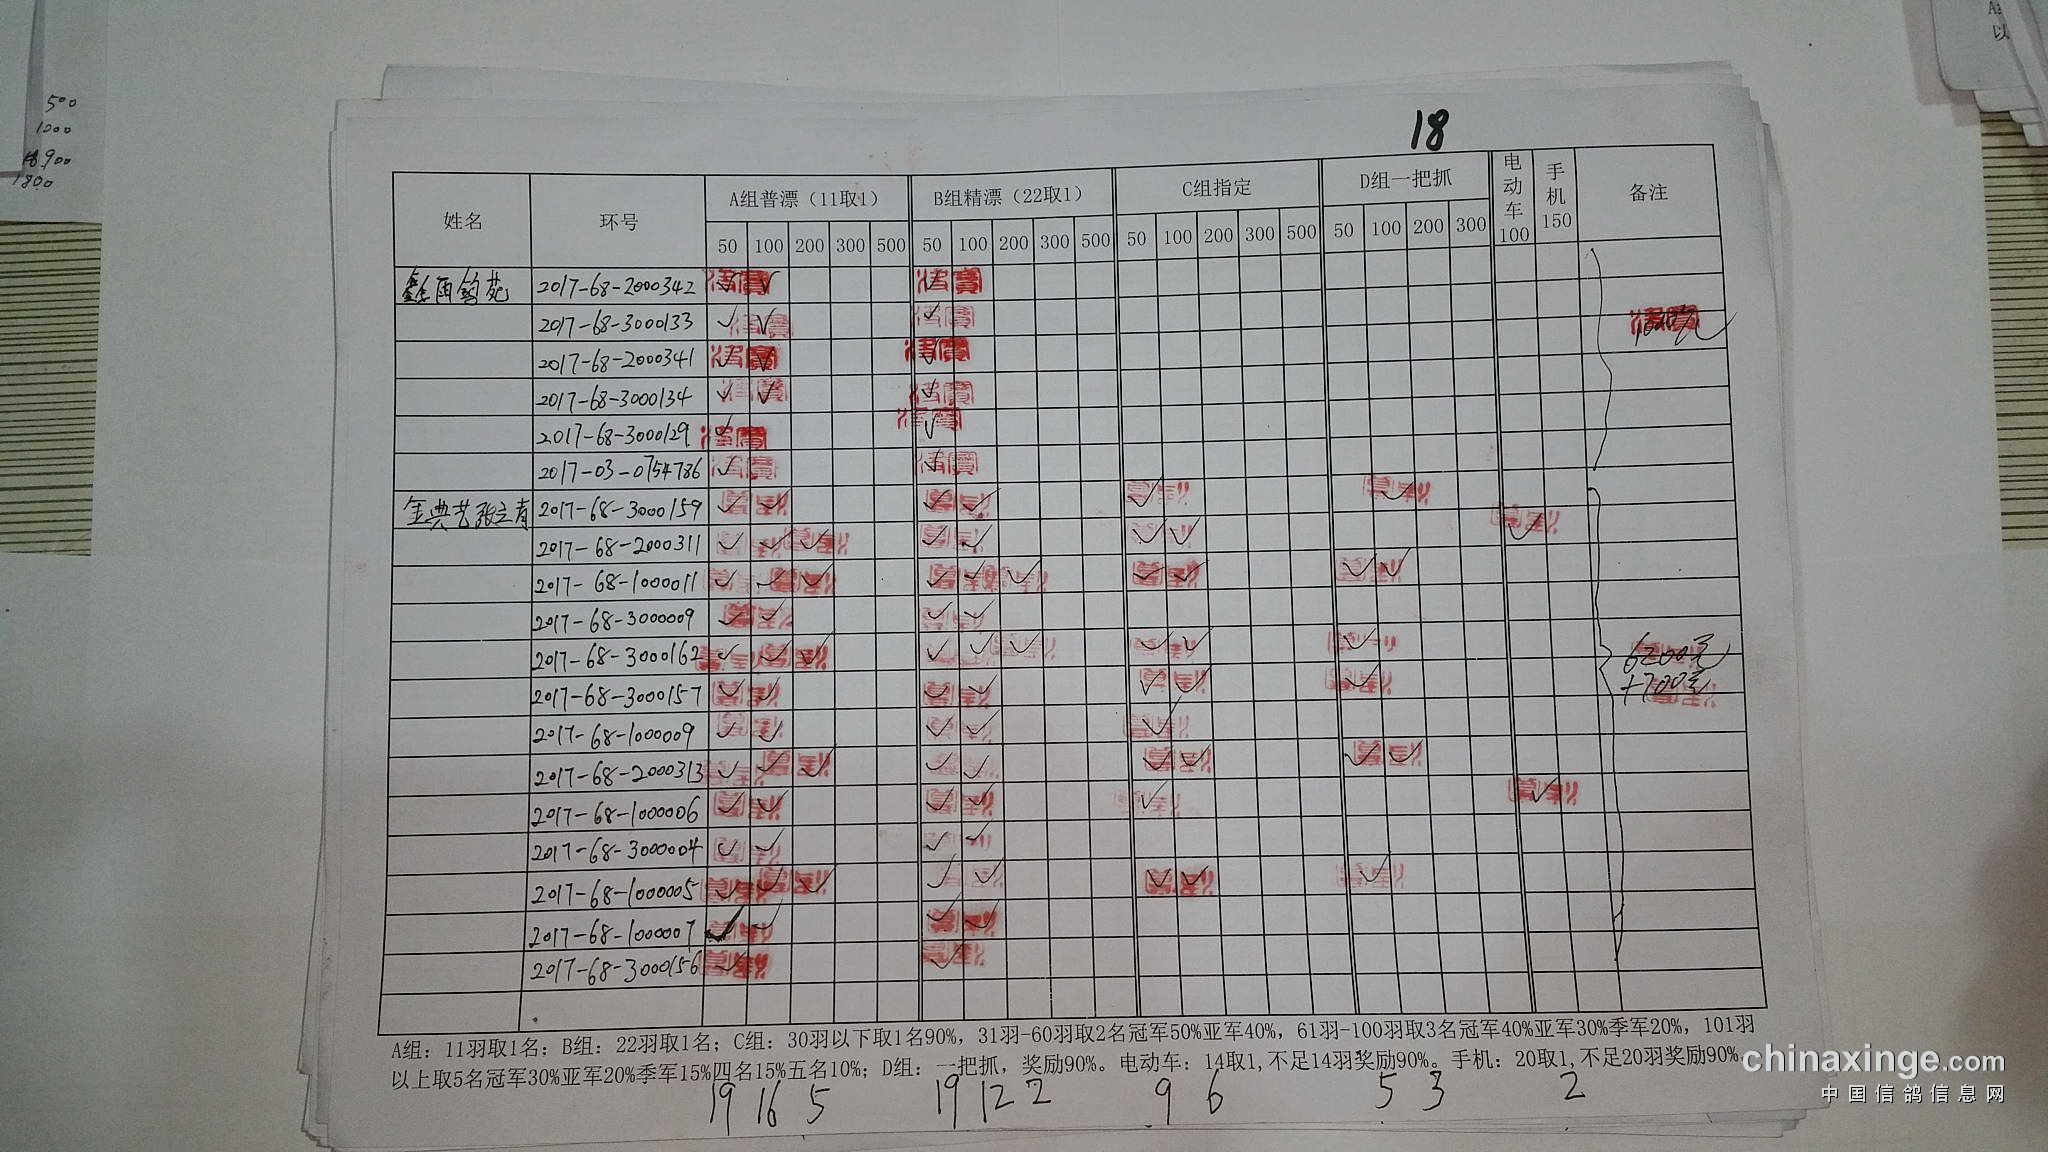 500
1200
18900
1800
A组
以
18
姓名 环号 A组普漂（11取1） B组精漂（22取1） C组指定 D组一把抓 电动车100 手机150 备注
50 100 200 300 500 50 100 200 300 500 50 100 200 300 500 50 100 200 300
2017-68-2000342 √ √ √
2017-68-3000133 √ √ √
2017-68-2000341 √ √ √
2017-68-3000134 √ √ √
2017-68-3000129 √ √
2017-03-0754786 √ √
金典艺张立春 2017-68-3000159 √ √ √ √ √ √
2017-68-2000311 √ √ √ √ √ √ √ √
2017-68-1000011 √ √ √ √ √ √ √ √ √ √
2017-68-3000009 √ √ √ √
2017-68-3000162 √ √ √ √ √ √ √ √ √
2017-68-3000157 √ √ √ √ √ √ √
2017-68-1000009 √ √ √ √ √
2017-68-2000313 √ √ √ √ √ √ √ √ √
2017-68-1000006 √ √ √ √ √ √
2017-68-3000004 √ √ √ √
2017-68-1000005 √ √ √ √ √ √ √ √
2017-68-1000007 √ √ √ √
2017-68-3000156 √ √
6200元
+700元
A组：11羽取1名；B组：22羽取1名；C组：30羽以下取1名90%，31羽-60羽取2名冠军50%亚军40%，61羽-100羽取3名冠军40%亚军30%季军20%，101羽
以上取5名冠军30%亚军20%季军15%四名15%五名10%；D组：一把抓，奖励90%。电动车：14取1,不足14羽奖励90%。手机：20取1,不足20羽奖励90%
19 16 5 19 12 2 9 6 5 3 2
chinaxinge.com
中国信鸽信息网